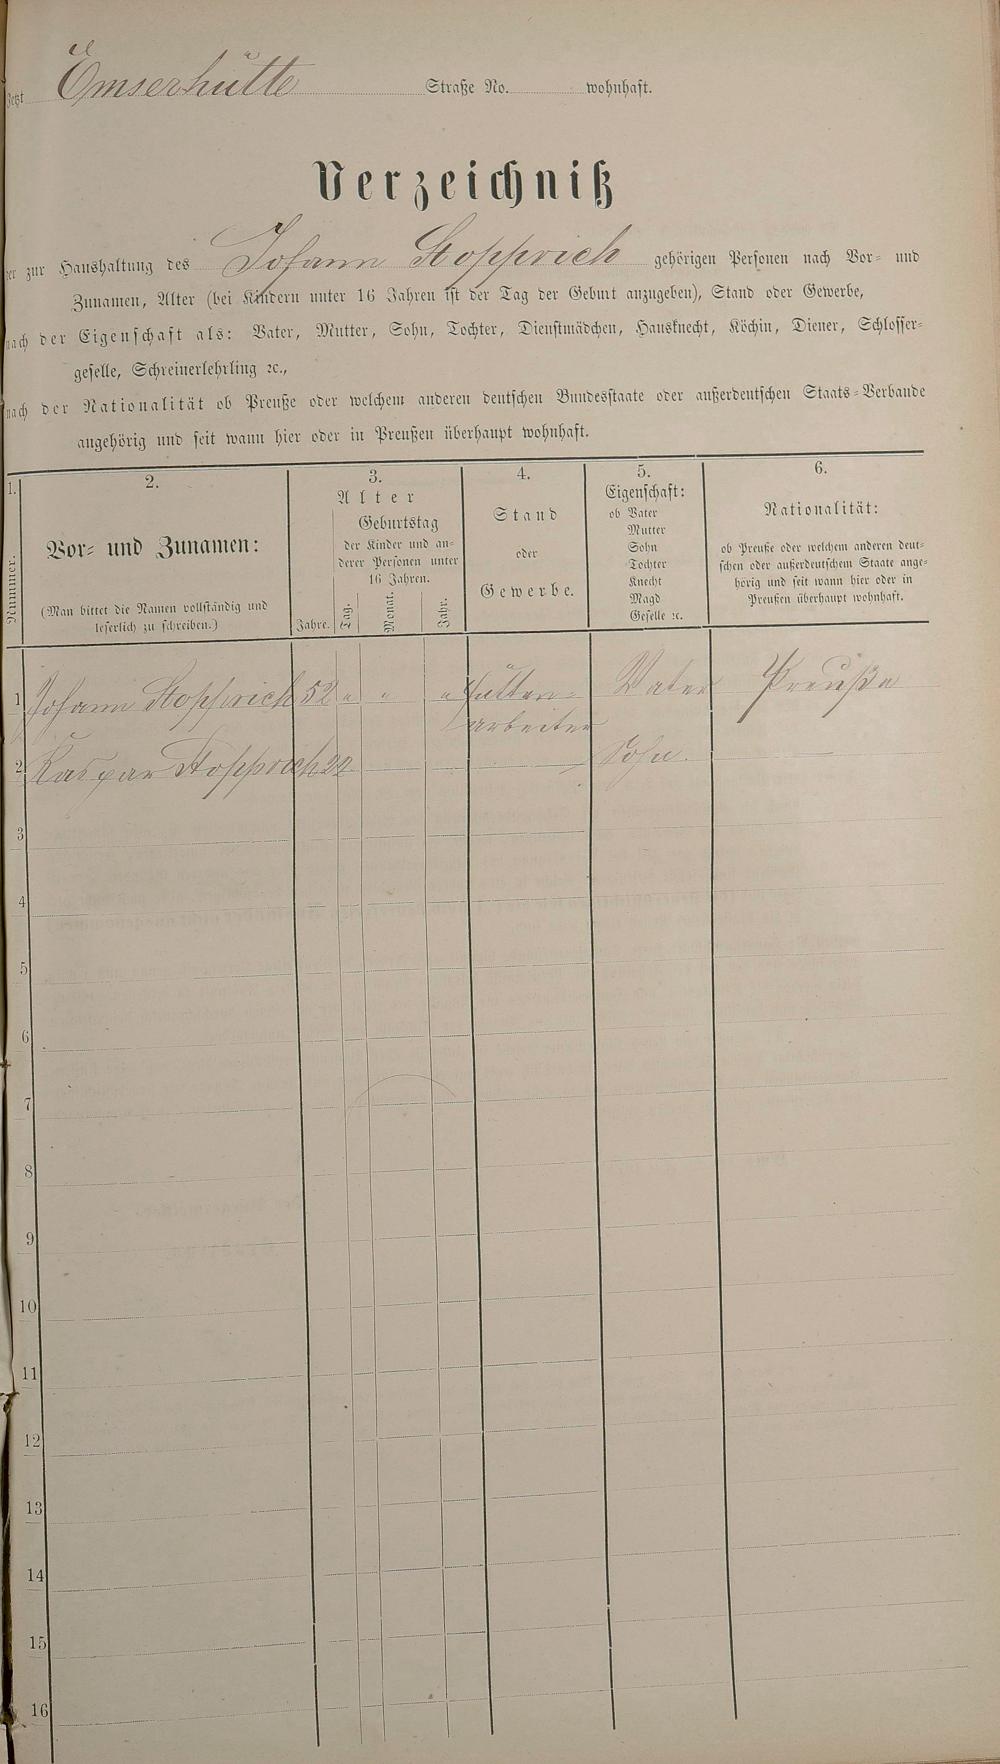 Jetzt Emserhütte Straße No. wohnhaft.
Verzeichniß
der zur Haushaltung des Johann Stopprich gehörigen Personen nach Vor- und
Zunamen, Alter (bei Kindern unter 16 Jahren ist der Tag der Geburt anzugeben), Stand oder Gewerbe,
nach der Eigenschaft als: Vater, Mutter, Sohn, Tochter, Dienstmädchen, Hausknecht, Köchin, Diener, Schlosser-
geselle, Schreinerlehrling ꝛc.,
nach der Nationalität ob Preuße oder welchem anderen deutschen Bundesstaate oder außerdeutschen Staats-Verbande
angehörig und seit wann hier oder in Preußen überhaupt wohnhaft.
1.
Nummer.
2.
Vor- und Zunamen:
(Man bittet die Namen vollständig und
leserlich zu schreiben.)
3.
Alter
Geburtstag
der Kinder und an-
derer Personen unter
16 Jahren.
Jahre. Tag. Monat. Jahr.
4.
Stand
oder
Gewerbe.
5.
Eigenschaft:
ob Vater
Mutter
Sohn
Tochter
Knecht
Magd
Geselle ꝛc.
6.
Nationalität:
ob Preuße oder welchem anderen deut-
schen oder außerdeutschem Staate ange-
hörig und seit wann hier oder in
Preußen überhaupt wohnhaft.
1 Johann Stopprich 52 " " " Hütten- Vater Preuße
arbeiter
2 Kaspar Stopprich 22 Sohn.
3
4
5
6
7
8
9
10
11
12
13
14
15
16